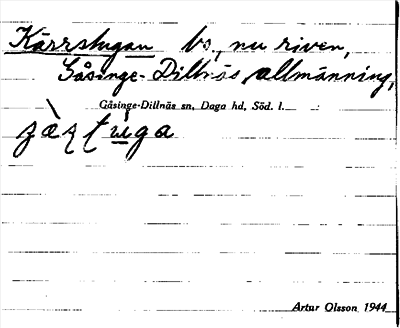 Kärrstugan bs., nu riven,
Gåsinge-Dillnäs allmänning,
Gåsinge-Dillnäs sn, Daga hd, Söd. l.
Artur Olsson 1944